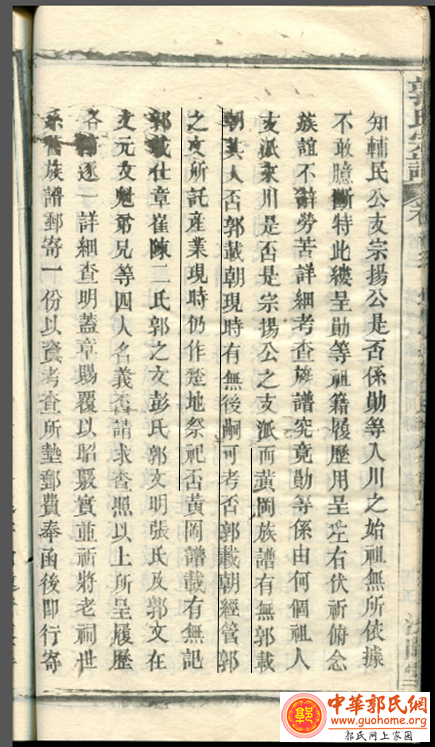 知輔民公支宗揚公是否係勛等入川之始祖無所依據
不敢臆斷特此縷呈勛等祖籍履歷用呈左右伏祈俯念
族誼不辭勞苦詳細考查族譜究竟勛等係由何個祖人
支派來川是否是宗揚公之支派而黃岡族譜有無郭載
朝其人否郭載朝現時有無後嗣可考否郭載朝經管郭
之文所託産業現時仍作塋地祭祀否黃岡譜載有無記
郭載仕章崔陳二氏郭之文彭氏郭文明張氏及郭文在
文元文魁弟兄等四人名義否請求查照以上所呈履歷
各節逐一詳細查明蓋章賜覆以昭嚴實並祈將老祠世
系舊族譜郵寄一份以資考查所墊郵費奉函後即行寄
郭氏宗譜
中華郭氏網
www.guohome.org
郭氏網上家園